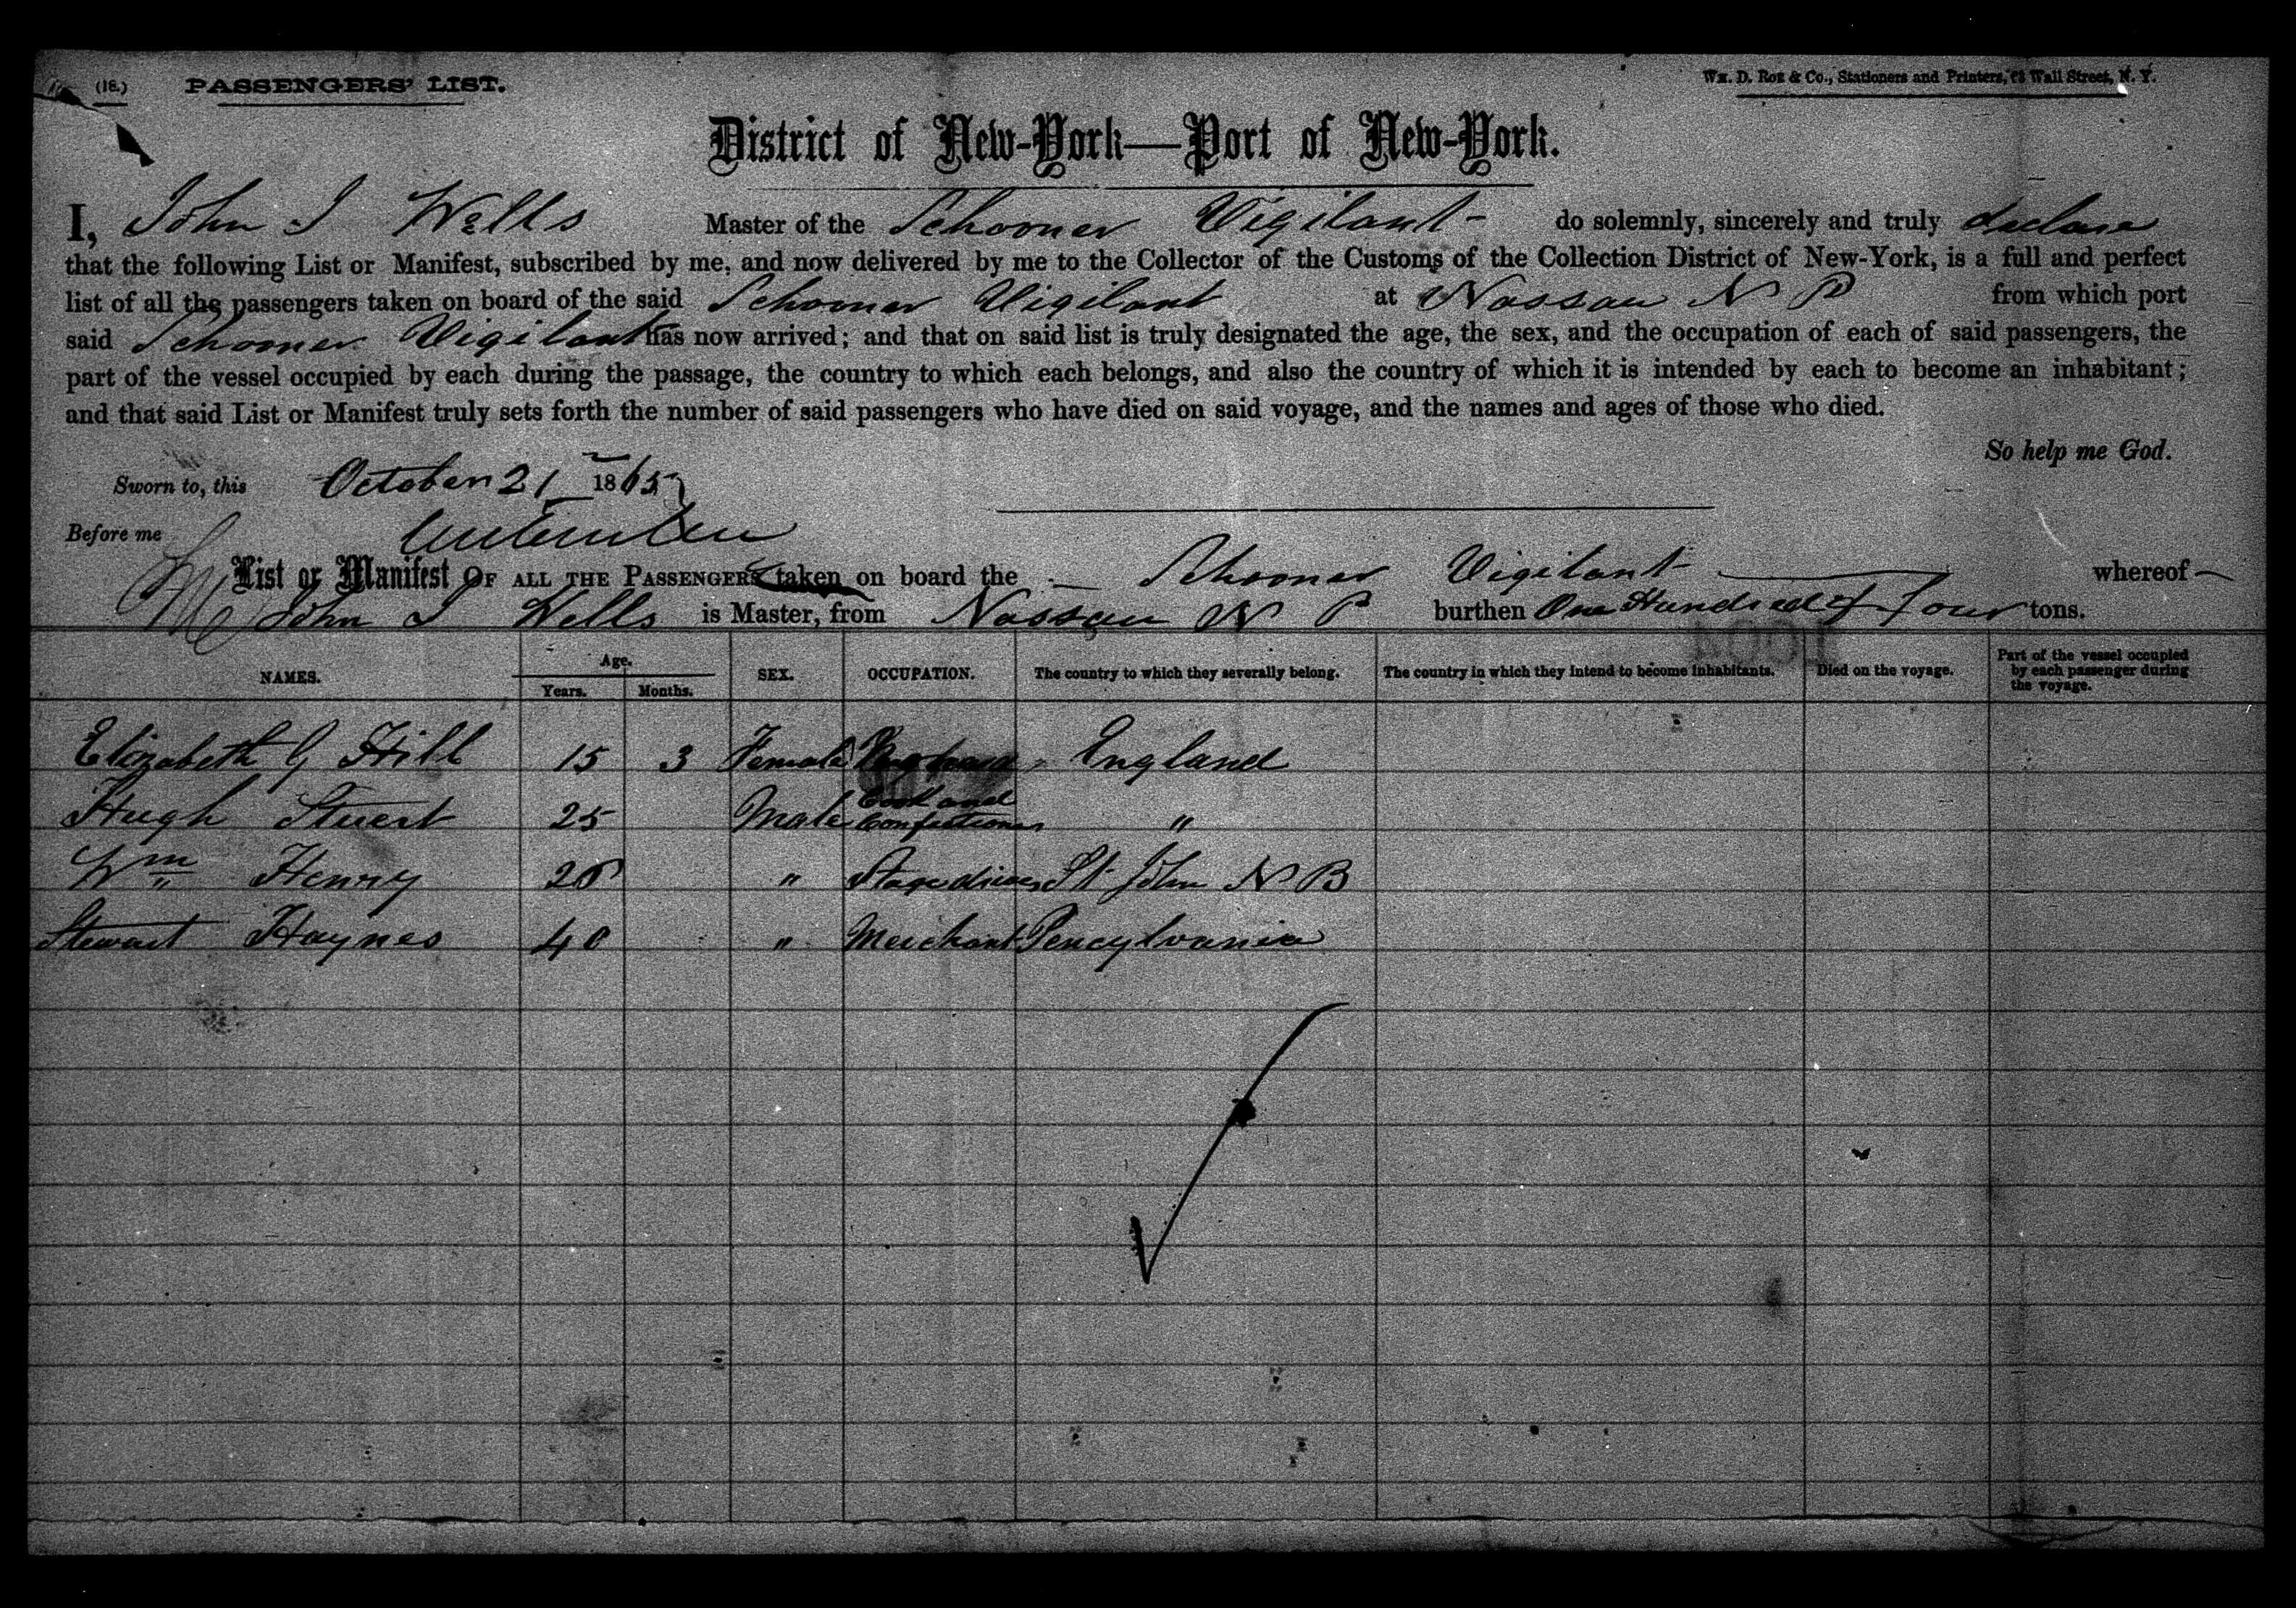 (18.) PASSENGERS' LIST.
Wm. D. Roe & Co., Stationers and Printers, Wall Street, N. Y.
District of New-York—Port of New-York.
I, John I Wells Master of the Schooner Vigilant do solemnly, sincerely and truly declare
that the following List or Manifest, subscribed by me, and now delivered by me to the Collector of the Customs of the Collection District of New-York, is a full and perfect
list of all the passengers taken on board of the said Schooner Vigilant at Nassau N P from which port
said Schooner Vigilant has now arrived; and that on said list is truly designated the age, the sex, and the occupation of each of said passengers, the
part of the vessel occupied by each during the passage, the country to which each belongs, and also the country of which it is intended by each to become an inhabitant;
and that said List or Manifest truly sets forth the number of said passengers who have died on said voyage, and the names and ages of those who died.
So help me God.
Sworn to, this October 21 1865
Before me
List or Manifest OF ALL THE PASSENGERS taken on board the Schooner Vigilant whereof
John I Wells is Master, from Nassau N P burthen One Hundred & Four tons.
NAMES. Age. Years. Months. SEX. OCCUPATION. The country to which they severally belong. The country in which they intend to become inhabitants. Died on the voyage. Part of the vessel occupied by each passenger during the voyage.
Elizabeth G Hill 15 3 Female England
Hugh Stuert 25 Male Cook and Confectioner "
Wm Henry " Stage driver St John N B
Stewart Haynes 40 " Merchant Pencylvania